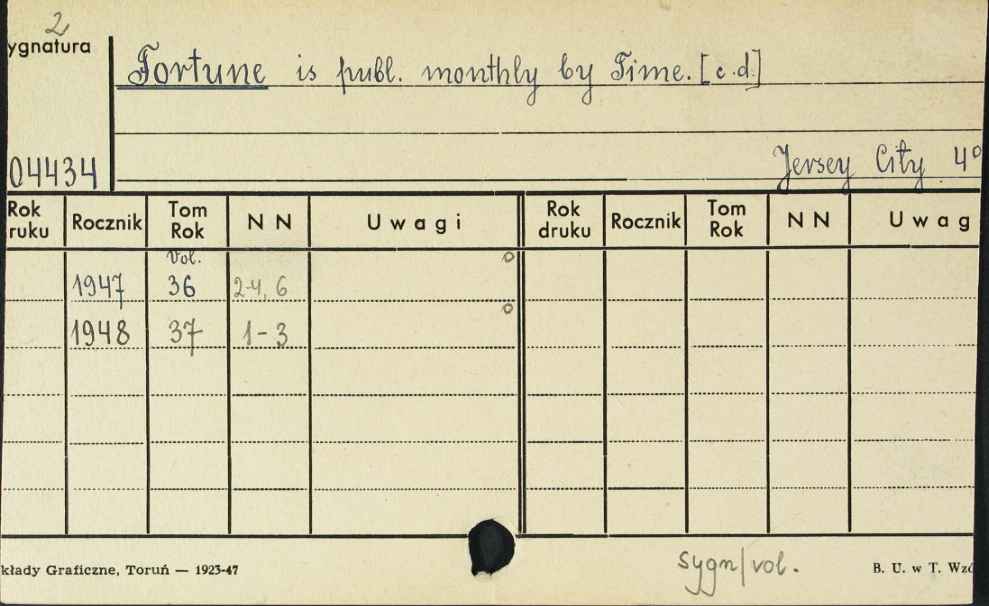 2
ygnatura
Fortune is publ. monthly by Time. [c.d.]
04434
Jersey City 4°
Rok ruku Rocznik Tom Rok N N Uwagi Rok druku Rocznik Tom Rok N N Uwag
Vol.
1947 36 2-4, 6
1948 37 1-3
kłady Graficzne, Toruń — 1923-47
sygn/vol.
B. U. w T. Wzó